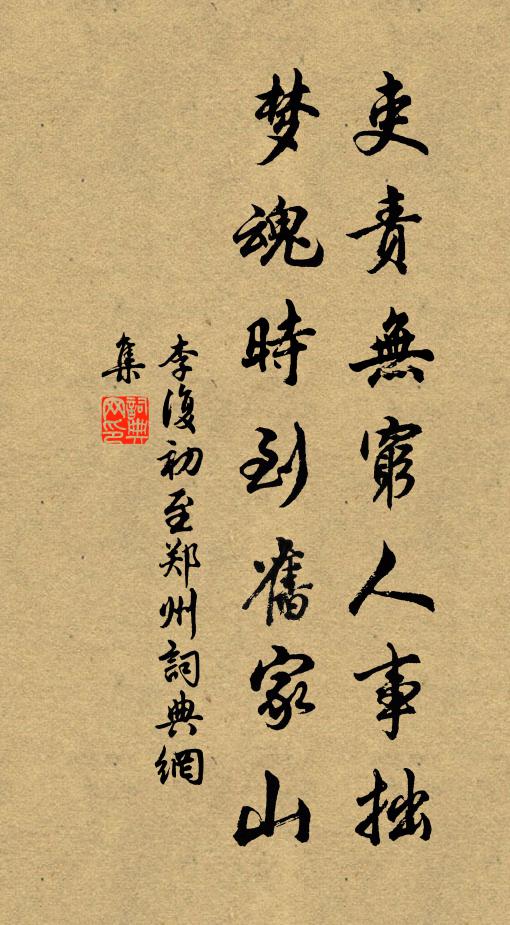 吏责無窮人事拙
梦魂時到舊家山
李復初至郑州詞典網
集
詞典
网印